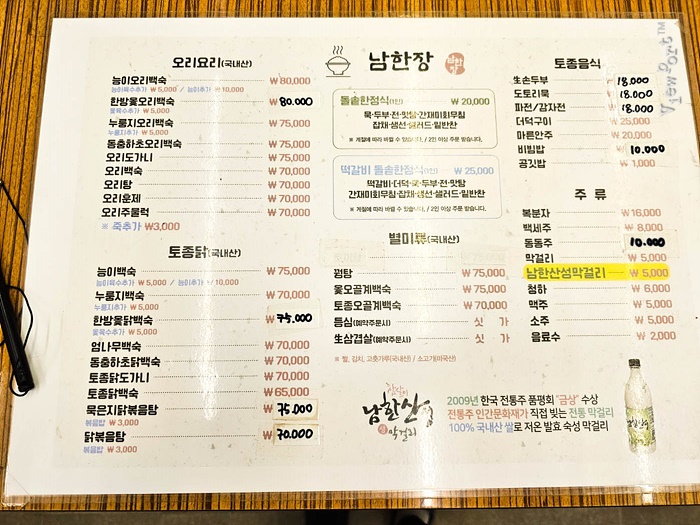 남한장
오리요리(국내산)
능이오리백숙 ₩80,000
능이육수추가 ₩5,000 / 능이추가 ₩10,000
한방옻오리백숙 ₩80.000
옻육수추가 ₩5,000
누룽지오리백숙 ₩75,000
누룽지추가 ₩5,000
동충하초오리백숙 ₩75,000
오리도가니 ₩75,000
오리백숙 ₩70,000
오리탕 ₩70,000
오리훈제 ₩70,000
오리주물럭 ₩70,000
※ 죽추가 ₩3,000
토종닭(국내산)
능이백숙 ₩75,000
능이육수추가 ₩5,000 / 능이추가 ₩10,000
누룽지백숙 ₩70,000
누룽지추가 ₩5,000
한방옻닭백숙 ₩75.000
옻육수추가 ₩5,000
엄나무백숙 ₩70,000
동충하초닭백숙 ₩70,000
토종닭도가니 ₩70,000
토종닭백숙 ₩65,000
묵은지닭볶음탕 ₩75.000
볶음밥 ₩3,000
닭볶음탕 ₩70.000
볶음밥 ₩3,000
돌솥한정식(1인) ₩20,000
묵·두부·전·맛탕·간재미회무침
잡채·생선·샐러드·밑반찬
※ 계절에 따라 바뀔 수 있습니다. / 2인 이상 주문 받습니다.
떡갈비 돌솥한정식(1인) ₩25,000
떡갈비·더덕·묵·두부·전·맛탕
간재미회무침·잡채·생선·샐러드·밑반찬
※ 계절에 따라 바뀔 수 있습니다. / 2인 이상 주문 받습니다.
별미류(국내산)
평탕 ₩75,000
옻오골계백숙 ₩75,000
토종오골계백숙 ₩70,000
등심(예약주문시) 싯 가
생삼겹살(예약주문시) 싯 가
※ 쌀, 김치, 고춧가루(국내산) / 소고기(미국산)
토종음식
生손두부 18.000
도토리묵 18.000
파전/감자전 18.000
더덕구이 ₩25,000
마른안주 ₩20,000
비빔밥 ₩10.000
공깃밥 ₩1,000
주 류
복분자 ₩16,000
백세주 ₩8,000
동동주 10.000
막걸리 ₩5,000
남한산성막걸리 ₩5,000
청하 ₩6,000
맥주 ₩5,000
소주 ₩5,000
음료수 ₩2,000
남한산성
막걸리
2009년 한국 전통주 품평회 "금상" 수상
전통주 인간문화재가 직접 빚는 전통 막걸리
100% 국내산 쌀로 저온 발효 숙성 막걸리
ViewPort™